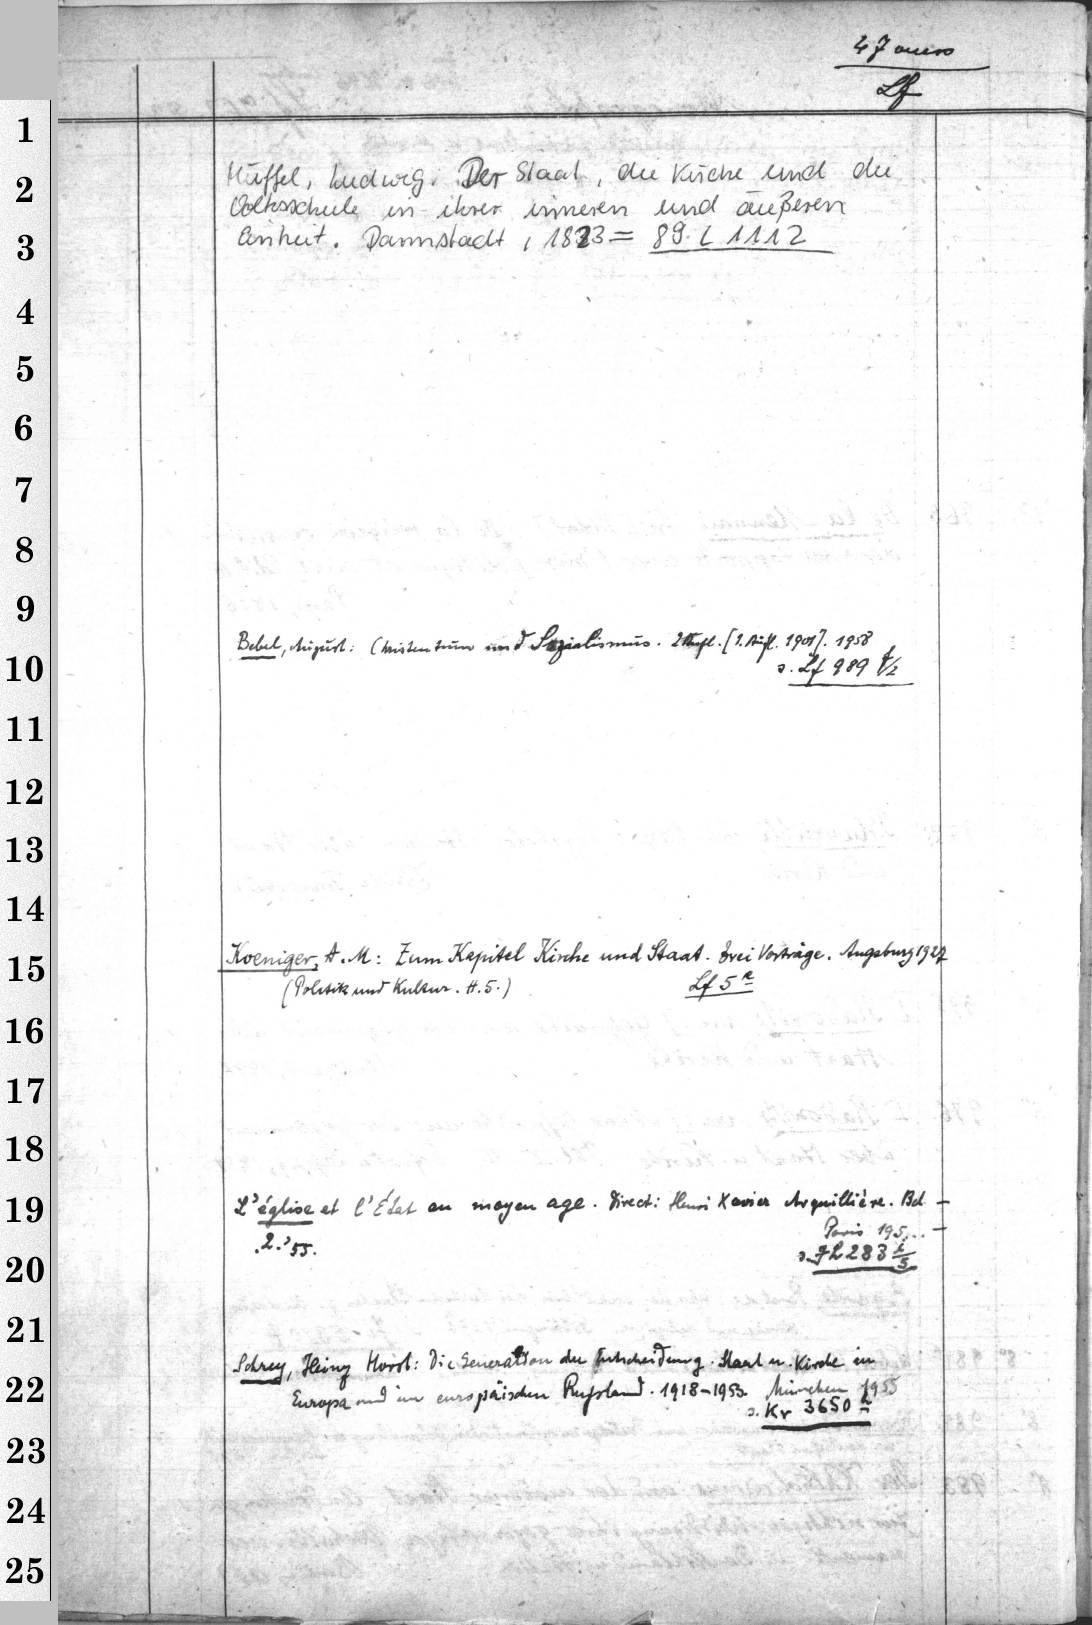 47
Lf
1
Hüffel, Ludwig. Der Staat, die Kirche und die
2
Volksschule in ihrer inneren und äußeren
3
Einheit. Darmstadt, 1823 = 89. L 1112
4
5
6
7
8
9
Bebel, August: Christentum und Sozialismus. 2. Aufl. [1. Aufl. 1901]. 1958
10
s. Lf 989
11
12
13
14
15
Koeniger, A. M: Zum Kapitel Kirche und Staat. Drei Vorträge. Augsburg 1927
(Politik und Kultur. H. 5.) Lf 5
16
17
18
19
L'église et l'État au moyen age. Direct: Henri Xavier Arquillière. Bd –
Paris 195... –
.2.'55.
s. 7L 283
20
21
Schrey, Heinz Horst: Die Generation der Entscheidung. Staat u. Kirche in
22
Europa und im europäischen Rußland. 1918–1953. München 1955
s. Kr 3650
23
24
25